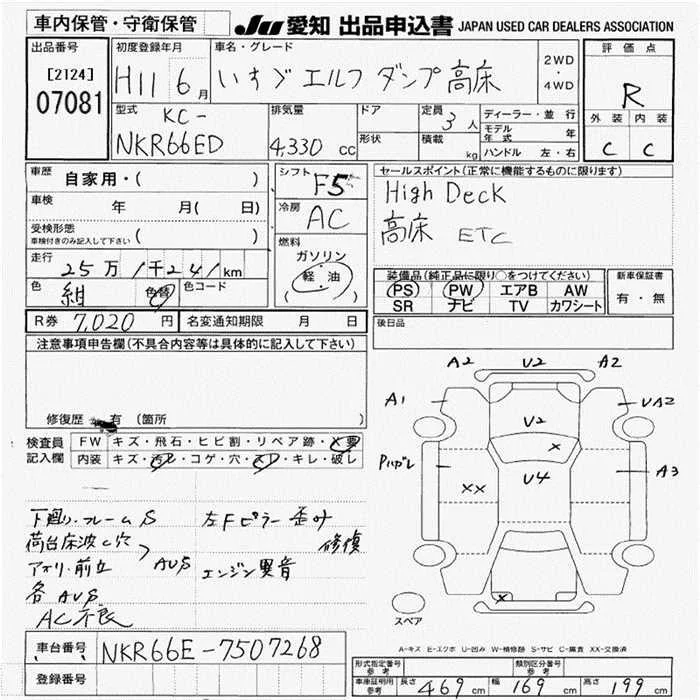 車内保管・守衛保管 JU 愛知 出品申込書 JAPAN USED CAR DEALERS ASSOCIATION
出品番号 初度登録年月 車名・グレード 評価点
[2124] H11 6月 いすゞ エルフ ダンプ 高床 2WD・4WD R
07081
型式 KC- 排気量 ドア 定員 3人 ディーラー・並行 外装 内装
NKR66ED 4,330 cc 形状 積載 kg モデル年式 年 C C
ハンドル 左・右
車歴 自家用・( ) シフト F5 セールスポイント(正常に機能するものに限ります)
車検 年 月( 日) 冷房 AC High Deck
受検形態 ( ) 高床 ETC
車検付きのみ記入して下さい 燃料
走行 25万1千241km ガソリン
色 紺 色替 色コード 軽・油 装備品(純正品に限り○をつけてください) 新車保証書
PS PW エアB AW 有・無
SR ナビ TV カワシート
R券 7,020円 名変通知期限 月 日 後日品
注意事項申告欄(不具合内容等は具体的に記入して下さい)
修復歴 有 (箇所 )
検査員記入欄 FW キズ・飛石・ヒビ割・リペア跡・X要
内装 キズ・汚レ・コゲ・穴・スレ・キレ・破レ
A2 V2 A2
A1 UA2
V2
X
Pハガレ U4 A3
XX
X
スペア
下廻り・フレーム S 左Fピラー歪み
荷台床波凹穴 修復
アオリ・前立 AUS エンジン異音
各AUS
AC不良
A-キズ E-エクボ U-凹み W-補修跡 S-サビ C-腐食 XX-交換済
車台番号 NKR66E-7507268
登録番号
形式指定番号 参考 類別区分番号 参考
車庫証明用 参考 長さ 469cm 幅 169cm 高さ 199cm